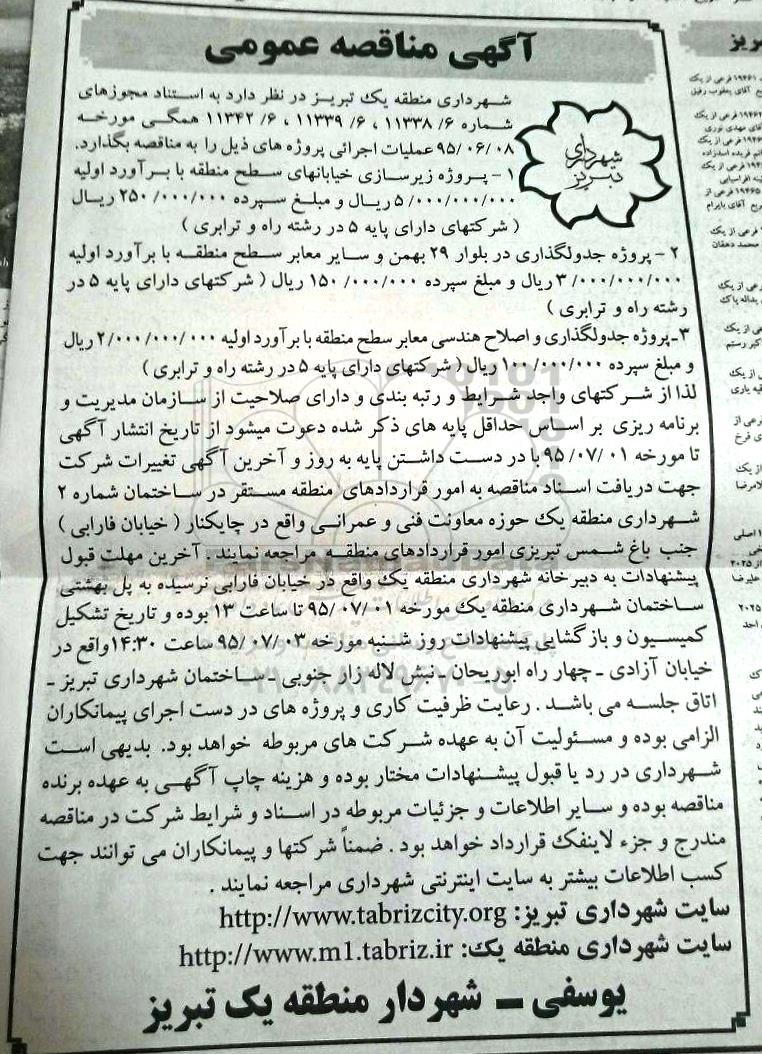 آگهی مناقصه عمومی
شهرداری تبریز
شهرداری منطقه یک تبریز در نظر دارد به استناد مجوزهای
شماره ۶/ ۱۱۳۳۸ ، ۶/ ۱۱۳۳۹ ، ۶/ ۱۱۳۴۲ همگی مورخه
۹۵/۰۶/۰۸ عملیات اجرائی پروژه های ذیل را به مناقصه بگذارد.
۱ - پروژه زیرسازی خیابانهای سطح منطقه با برآورد اولیه
۵/۰۰۰/۰۰۰/۰۰۰ ریال و مبلغ سپرده ۲۵۰/۰۰۰/۰۰۰ ریال
( شرکتهای دارای پایه ۵ در رشته راه و ترابری )
۲ - پروژه جدولگذاری در بلوار ۲۹ بهمن و سایر معابر سطح منطقه با برآورد اولیه
۳/۰۰۰/۰۰۰/۰۰۰ ریال و مبلغ سپرده ۱۵۰/۰۰۰/۰۰۰ ریال ( شرکتهای دارای پایه ۵ در
رشته راه و ترابری )
۳ـ پروژه جدولگذاری و اصلاح هندسی معابر سطح منطقه با برآورد اولیه ۲/۰۰۰/۰۰۰/۰۰۰ ریال
و مبلغ سپرده ۱۰۰/۰۰۰/۰۰۰ ریال ( شرکتهای دارای پایه ۵ در رشته راه و ترابری )
لذا از شرکتهای واجد شرایط و رتبه بندی و دارای صلاحیت از سازمان مدیریت و
برنامه ریزی بر اساس حداقل پایه های ذکر شده دعوت میشود از تاریخ انتشار آگهی
تا مورخه ۹۵/۰۷/۰۱ با در دست داشتن پایه به روز و آخرین آگهی تغییرات شرکت
جهت دریافت اسناد مناقصه به امور قراردادهای منطقه مستقر در ساختمان شماره ۲
شهرداری منطقه یک حوزه معاونت فنی و عمرانی واقع در چایکنار ( خیابان فارابی )
جنب باغ شمس تبریزی امور قراردادهای منطقه مراجعه نمایند . آخرین مهلت قبول
پیشنهادات به دبیرخانه شهرداری منطقه یک واقع در خیابان فارابی نرسیده به پل بهشتی
ساختمان شهرداری منطقه یک مورخه ۹۵/۰۷/۰۱ تا ساعت ۱۳ بوده و تاریخ تشکیل
کمیسیون و بازگشایی پیشنهادات روز شنبه مورخه ۹۵/۰۷/۰۳ ساعت ۱۴:۳۰ واقع در
خیابان آزادی ـ چهار راه ابوریحان ـ نبش لاله زار جنوبی ـ ساختمان شهرداری تبریز ـ
اتاق جلسه می باشد . رعایت ظرفیت کاری و پروژه های در دست اجرای پیمانکاران
الزامی بوده و مسئولیت آن به عهده شرکت های مربوطه خواهد بود. بدیهی است
شهرداری در رد یا قبول پیشنهادات مختار بوده و هزینه چاپ آگهی به عهده برنده
مناقصه بوده و سایر اطلاعات و جزئیات مربوطه در اسناد و شرایط شرکت در مناقصه
مندرج و جزء لاینفک قرارداد خواهد بود . ضمناً شرکتها و پیمانکاران می توانند جهت
کسب اطلاعات بیشتر به سایت اینترنتی شهرداری مراجعه نمایند .
سایت شهرداری تبریز: http://www.tabrizcity.org
سایت شهرداری منطقه یک: http://www.m1.tabriz.ir
یوسفی ـ شهردار منطقه یک تبریز